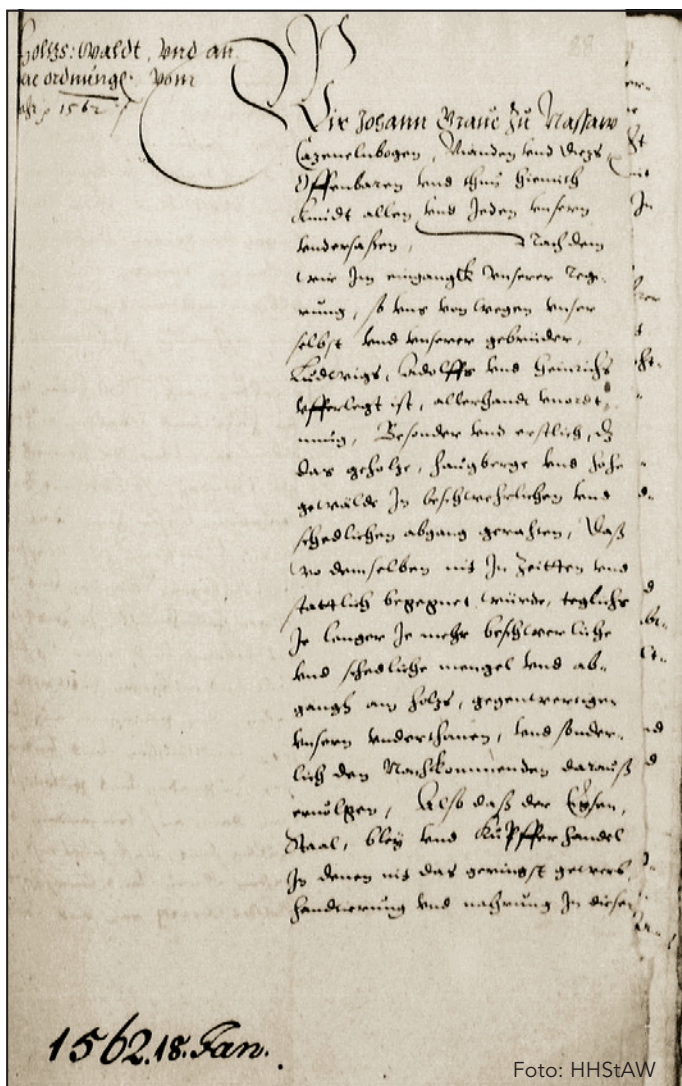 Holtzs: Waldt, vnd an
ordnunge vom
1562
28
Wir Johann Graue zu Nassaw
Cazenelnbogen, Vianden vnd Diezs
Offenbaren vnd thun hiemith
kundt allen vnd Jeden vnsern
vndersassen, Nach dem
wir Im eingangk vnserer rege-
rung, so vns von wegen vnser
selbst vnd vnserer gebrüder,
Ludwigs, Adolffs vnd Heinrichs
vfferlegt ist, allerhandt vnordt
nung, Besonder vnd erstlich, dz
das geholze, haugberge vnd hohe
gewälde In beschwehrlichen vnd
schedlichen abgang gerahten, Daß
wo demselben nit In Zeitten vnd
stattlich begegnet würde, teglichs
Je langer Je mehr beschwerliche
vnd schedliche mengel vnd ab-
gangk an holtzs, gegenwertigen
vnsern vnderthanen, vnd sonder-
lich den Nachkommenden darauß
ervolgen, Also daß der Eysen,
Staal, bley vnd Kupffer handel
In denen nit das geringst gewerb,
handtierung vnd nahrung In diesen
1562.18.Jan.
Foto: HHStAW